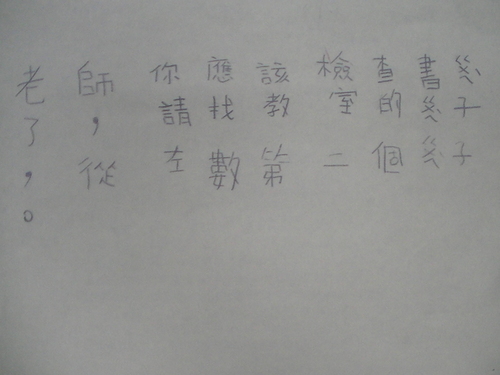 老師你應該檢查書
了,請找教室的子
,從左數第二個子
。